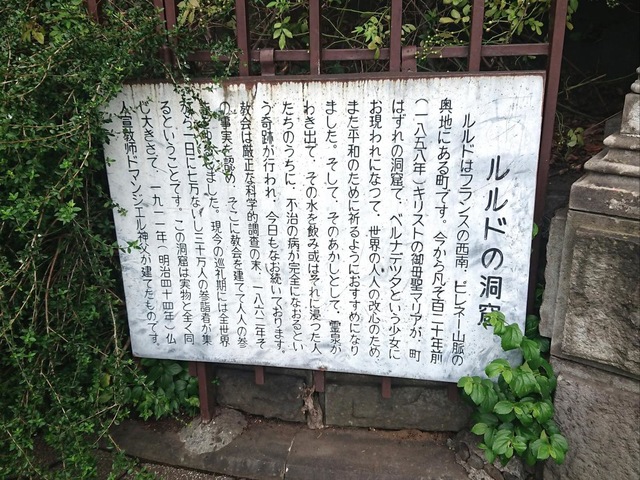 ルルドの洞窟
ルルドはフランスの西南、ピレネー山脈の
奥地にある町です。今から凡そ百二十年前
(一八五八年)キリストの御母聖マリアが、町
はずれの洞窟で、ベルナデツタという少女に
お現われになつて、世界の人人の改心のため、
また平和のために祈るようにおすすめになり
ました。そして、そのあかしとして、霊泉が
わき出て、その水を飲み或はそれに浸つた人
たちのうちに、不治の病が完全になおるとい
う奇跡が行われ、今日もなお続いております。
教会は厳正な科学的調査の末、一八六二年そ
の事実を認め、そこに教会を建てて人人の参
ました。現今の巡礼期には全世界
から一日に七万ないし三十万人の参詣者が集
るということです。この洞窟は実物と全く同
じ大きさで、一九一一年(明治四十四年)仏
人宣教師ドマンジエル神父が建てたものです。